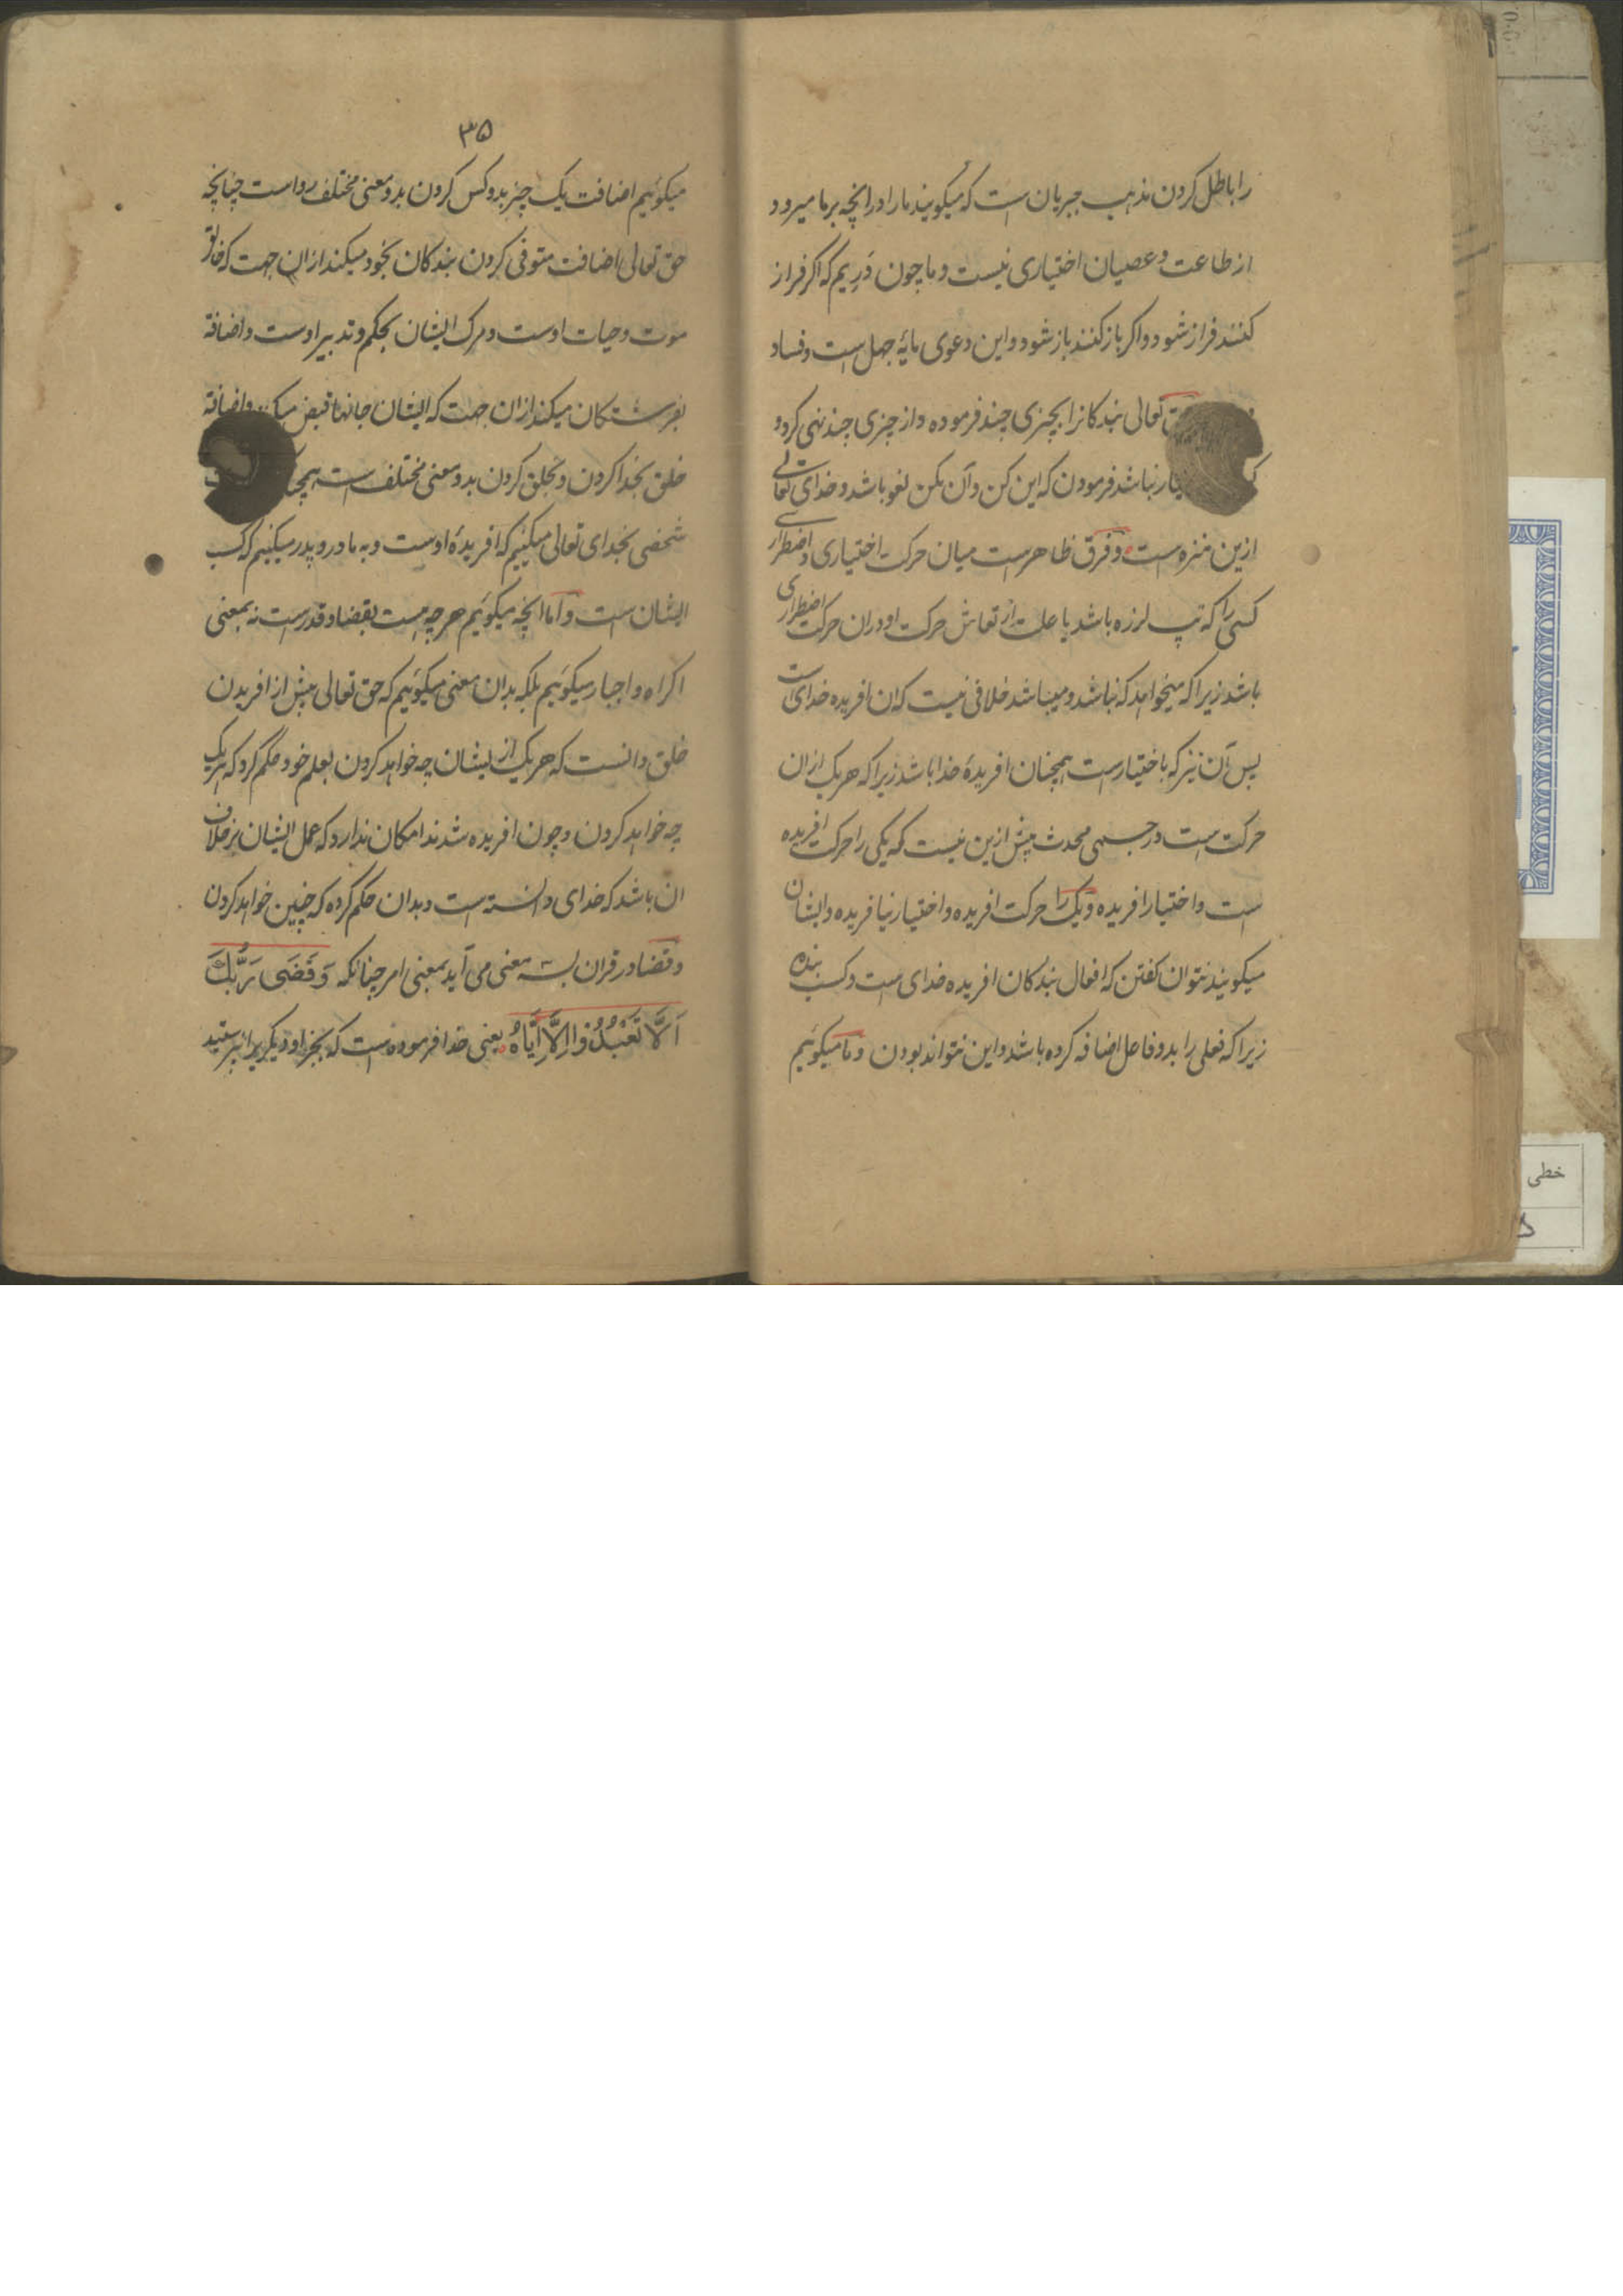 را باطل کردن مذهب جبریان است که میکویند ما را در انچه بر ما میرود
از طاعت و عصیان اختیاری نیست و ما چون دَرِیم که اکر فراز
کنند فراز شود و اکر باز کنند باز شود و این دعوی مایهٔ جهل است و فساد
تعالی بندکانرا بچیزی چند فرموده و از چیزی چند نهی کرد و
نباشد فرمودن که این کن و آن مکن لغو باشد و خدای تعالی
ازین منزه است و فرق ظاهرست میان حرکت اختیاری و اضطراری
کسی را که تپ لرزه باشد یا علت ارتعاش حرکت او دران حرکت اضطراری
باشد زیرا که میخواهد که نباشد و میباشد خلافی نیست که ان افریده خدای است
پس آن نیز که باختیارست همچنان افریدهٔ خدا باشد زیرا که هریک ازان
حرکت است در جسمی محدث پیش ازین نیست که یکی را حرکت افریده
است و اختیار افریده و یک را حرکت افریده و اختیار نیافریده و ایشان
میکویند نتوان کفتن که افعال بندکان افریده خدای است و کسب بنده
زیرا که فعلی را بدو فاعل اضافه کرده باشد و این نتواند بودن و ما میکوئیم
۳۵
میکوئیم اضافت یک چیز بدو کس کردن بدو معنی مختلف رواست چنانچه
حق تعالی اضافت متوفی کردن بندکان بخود میکند ازان جهت که خالق
موت و حیات اوست و مرک ایشان بحکم و تدبیر اوست و اضافة
بفرشتکان میکند ازان جهت که ایشان جانها قبض میکنند و اضافة
خلق بخدا کردن و بخلق کردن بدو معنی مختلف است
شخصی بخدای تعالی میکنیم که افریدهٔ اوست و به مادر و پدر میکنیم که کسب
ایشان است و اما انچه میکوئیم هرچه هست بقضا و قدرست نه بمعنی
اکراه و اجبار میکوئیم بلکه بدان معنی میکوئیم که حق تعالی پیش از افریدن
خلق دانست که هریک از ایشان چه خواهد کردن بعلم خود حکم کرد که هریک
چه خواهد کردن و چون افریده شدند امکان ندارد که عمل ایشان بر خلاف
ان باشد که خدای دانسته است و بدان حکم کرده که چنین خواهد کردن
و قضا در قران بسه معنی می آید بمعنی امر چنانکه وَ قَضَی رَبُّکَ
اَلَّا تَعْبُدُوا اِلَّا اِیَّاهُ یعنی خدا فرموده است که بجز او دیکریرا نپرستید
خطی